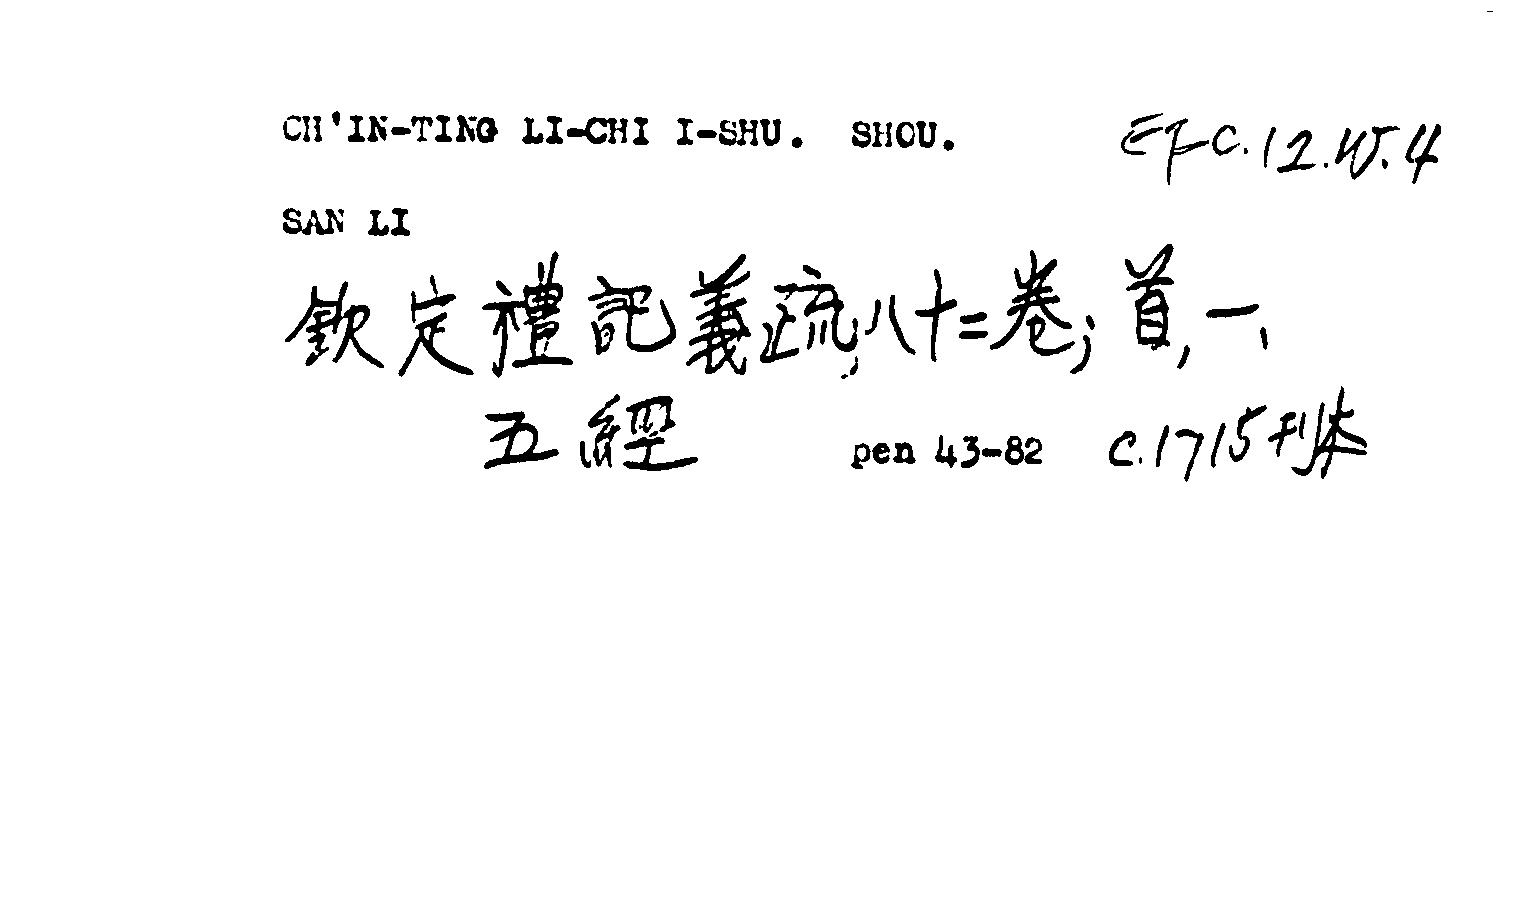 CH'IN-TING LI-CHI I-SHU. SHOU. EFC.12.W.4
SAN LI
欽定禮記義疏,八十二卷;首,一、
五經 pen 43-82 c.1715刊本